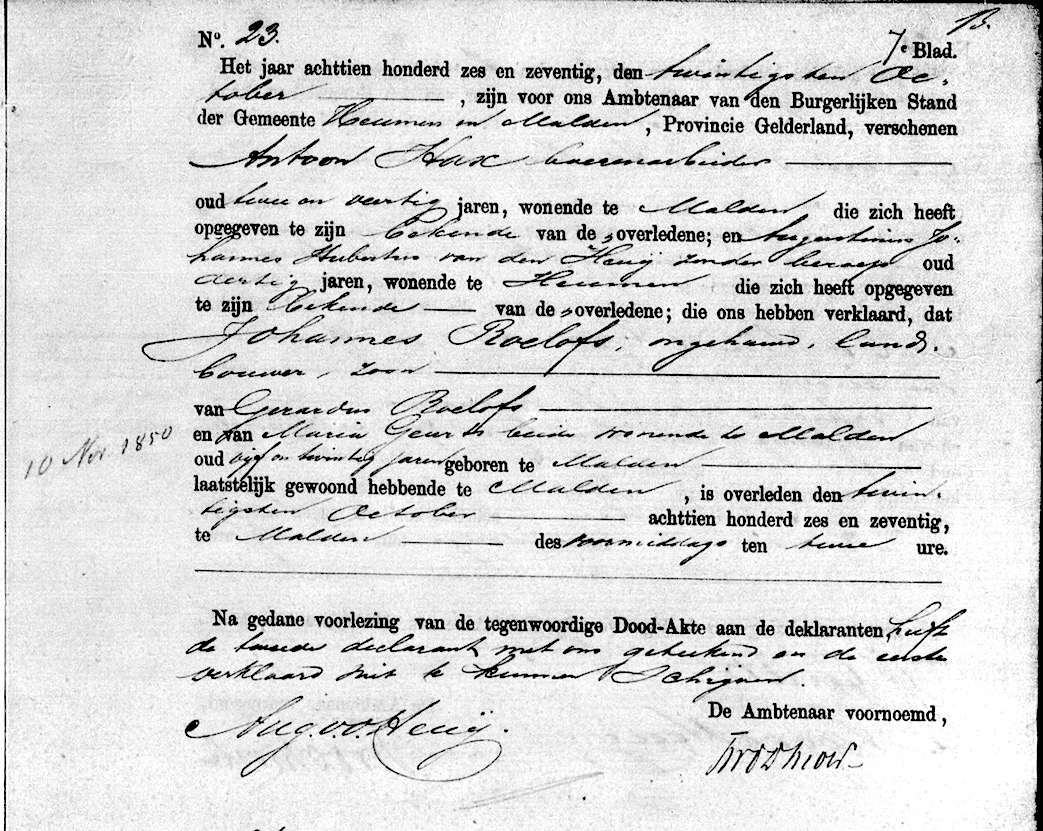 B.
No. 23.
7e Blad.
Het jaar achttien honderd zes en zeventig, den twintigsten Oc-
tober, zijn voor ons Ambtenaar van den Burgerlijken Stand
der Gemeente Heumen en Malden, Provincie Gelderland, verschenen
Antoon Hax boerenarbeider
oud twee en veertig jaren, wonende te Malden die zich heeft
opgegeven te zijn bekende van de overledene; en Augustinus Jo-
hannes Hubertus van den Heuij zonder beroep oud
dertig jaren, wonende te Heumen die zich heeft opgegeven
te zijn bekende van de overledene; die ons hebben verklaard, dat
Johannes Roelofs, ongehuwd, land-
bouwer, zoon
van Gerardus Roelofs
en van Maria Geurts beide wonende te Malden
10 Nov 1850
oud vijf en twintig jaren geboren te Malden
laatstelijk gewoond hebbende te Malden, is overleden den twin-
tigsten October achttien honderd zes en zeventig,
te Malden des voormiddags ten twee ure.
Na gedane voorlezing van de tegenwoordige Dood-Akte aan de deklaranten, heeft
de tweede declarant met ons geteekend en de eerste
verklaard niet te kunnen schrijven.
De Ambtenaar voornoemd,
Aug. v. d. Heuij.